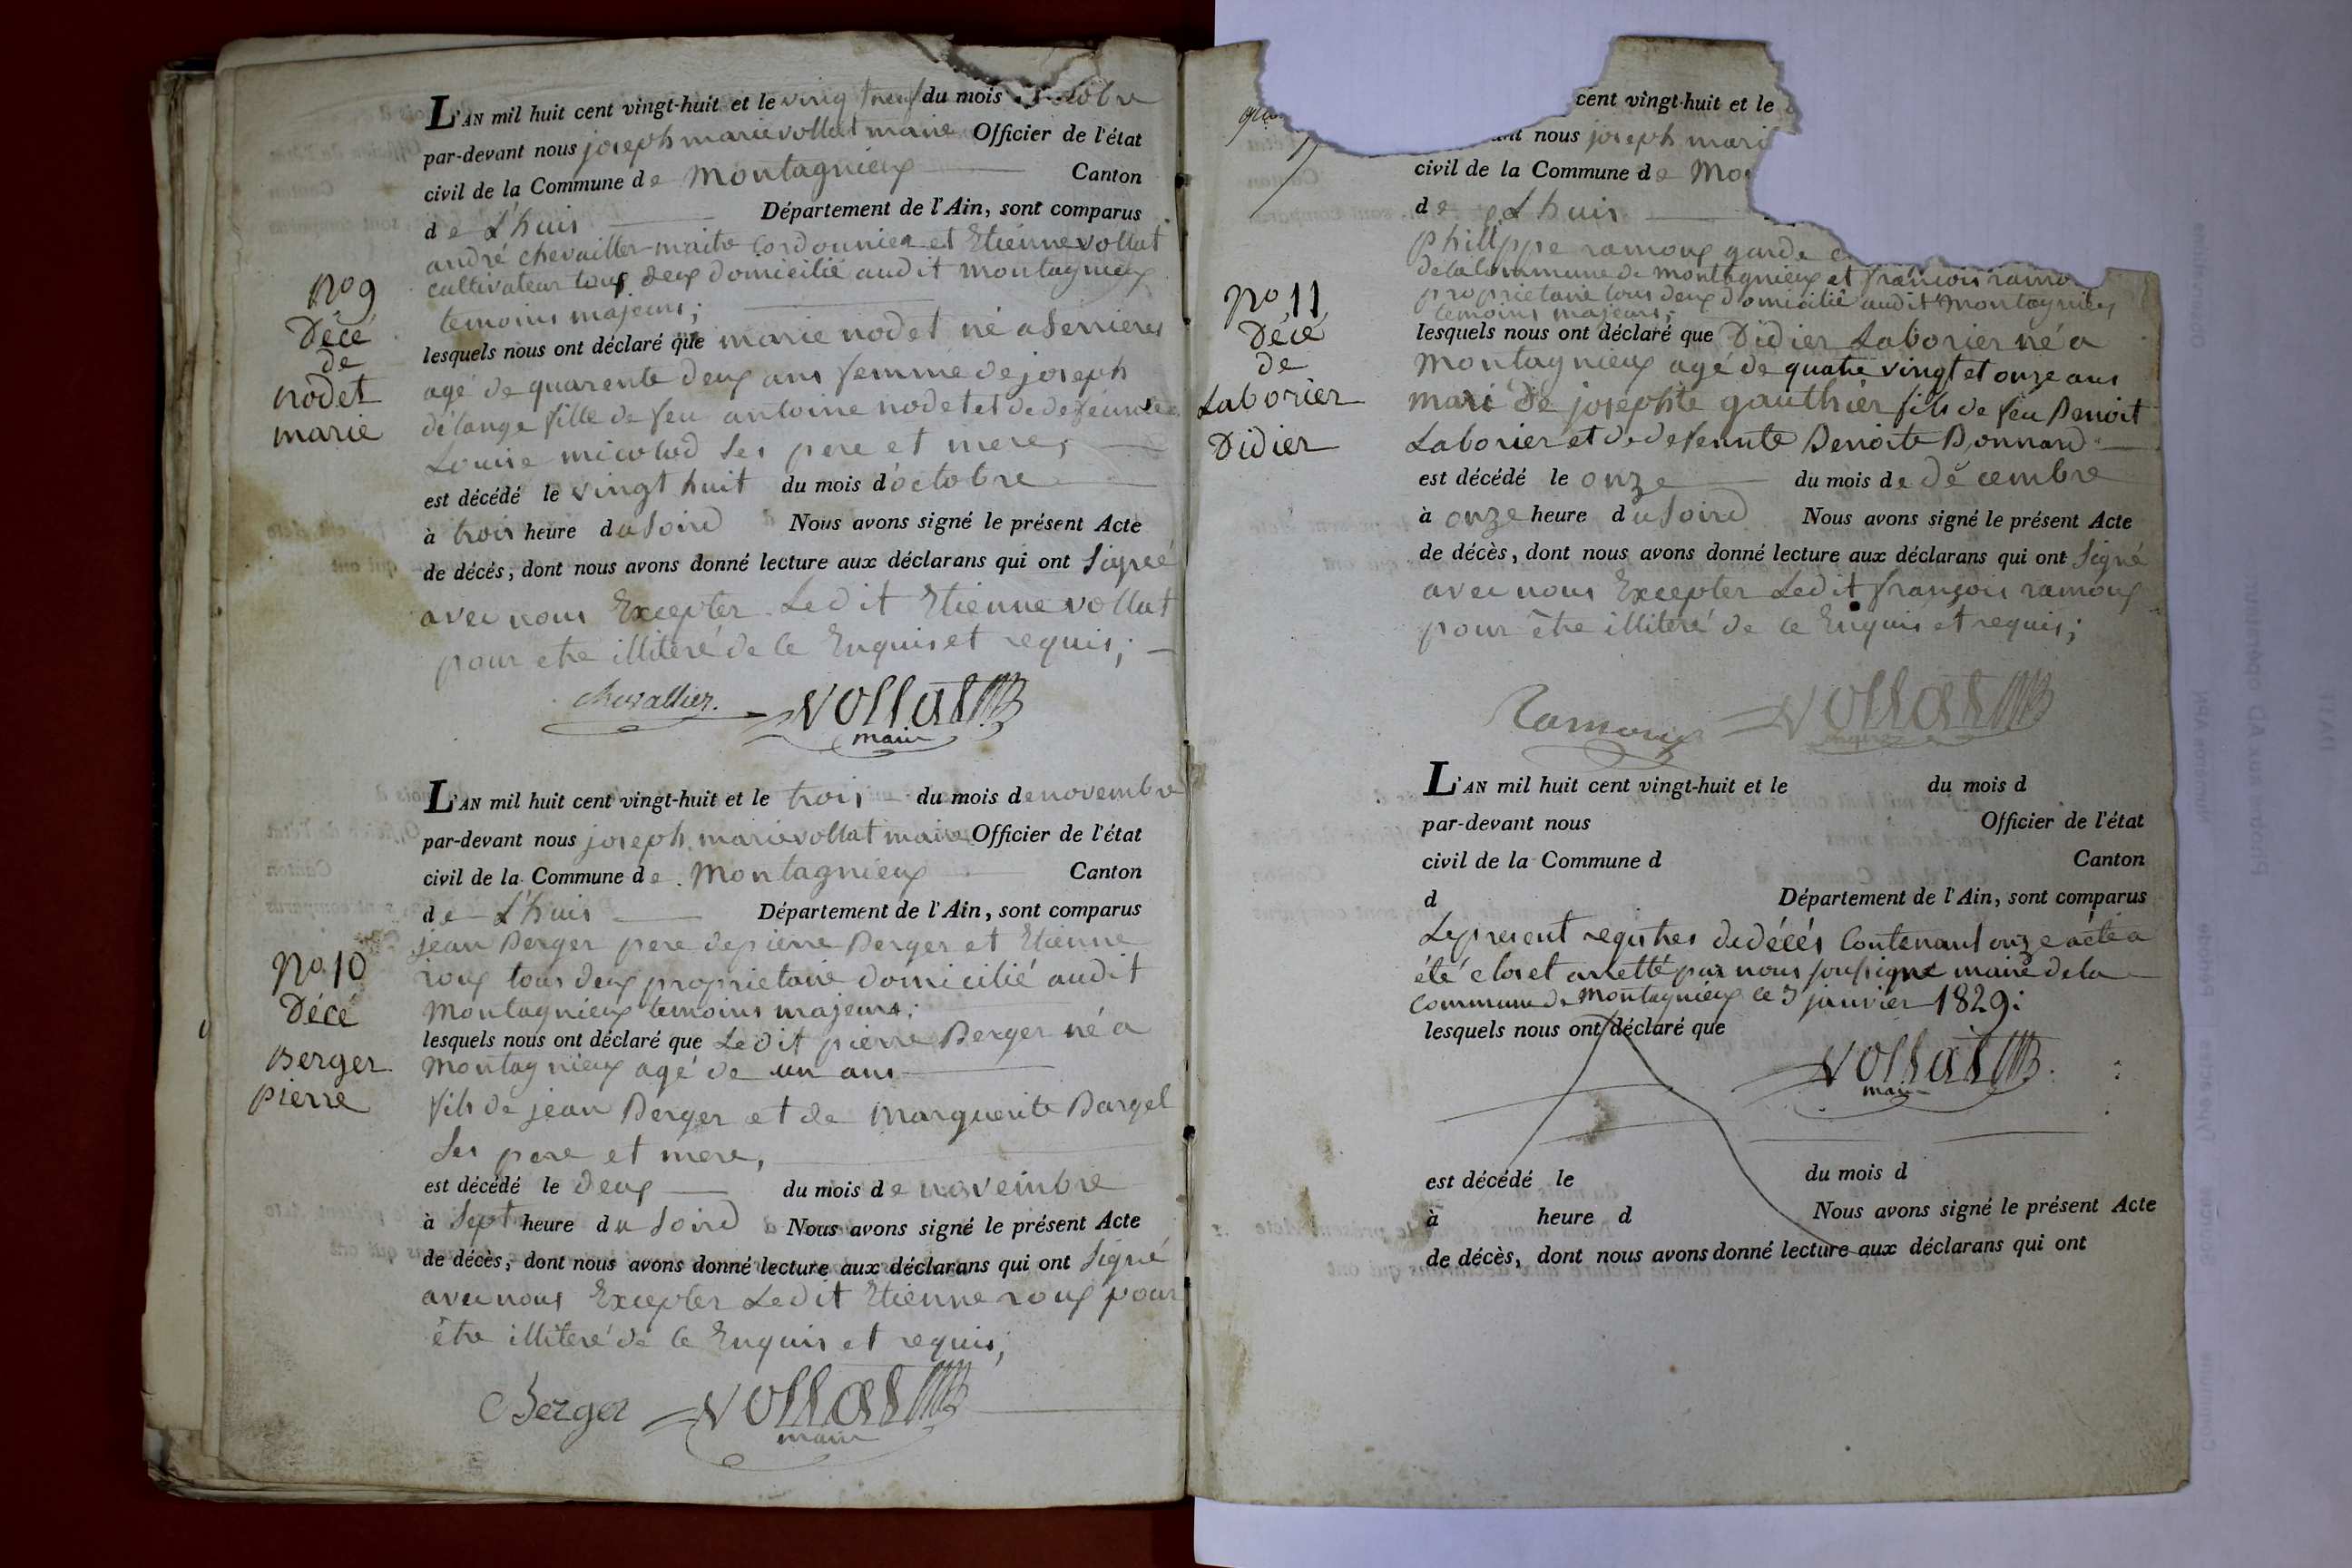 L'AN mil huit cent vingt-huit et le vingt neuf du mois
par-devant nous joseph marie vollat maire Officier de l'état
civil de la Commune de Montagnieux Canton
de L'huis Département de l'Ain, sont comparus
andré chevallier maitre Cordounier et Etienne vollat
cultivateur tous deux domicilié audit montagnieux
temoins majeurs;
No 9
Décé
de
nodet
marie
lesquels nous ont déclaré que marie nodet né a Serrieres
agé de quarente deux ans femme de joseph
délange fille de feu antoine nodet et de defeunte
Louise micolod Ses pere et mere,
est décédé le vingt huit du mois d'octobre
à trois heure du Soird Nous avons signé le présent Acte
de décés, dont nous avons donné lecture aux déclarans qui ont Signé
avec nous Excepter Ledit Etienne vollat
pour etre illiteré de ce Enquis et requis;
chevallier. vollat
maire
L'AN mil huit cent vingt-huit et le trois du mois de novembre
par-devant nous joseph marie vollat maire Officier de l'état
civil de la Commune de Montagnieux Canton
de L'huis Département de l'Ain, sont comparus
jean Berger pere de pierre Berger et Etienne
roux tous deux proprietaire domicilié audit
Montagnieux temoins majeurs;
No 10
Décé
Berger
pierre
lesquels nous ont déclaré que Ledit pierre Berger né a
Montagnieux agé de un ans
fils de jean Berger et de Marguerite Bargel
Ses pere et mere,
est décédé le deux du mois de novembre
à Sept heure du Soird Nous avons signé le présent Acte
de décès, dont nous avons donné lecture aux déclarans qui ont Signé
avec nous Excepter Ledit Etienne roux pour
être illiteré de ce Enquis et requis;
Berger vollat
maire
cent vingt-huit et le
nous joseph mari
civil de la Commune de Mo
de L'huis
philippe ramoux garde
de la Commune de montagnieux et francois ramo
proprietaire tous deux domicilié audit Montagnieux
temoins majeurs;
No 11
Décé
de
Laborier
Didier
lesquels nous ont déclaré que Didier Laborier né a
Montagnieux agé de quatre vingt et onze ans
mari de josephte gauthier fils de feu Benoit
Laborier et de defeunte Benoite Bonnard
est décédé le onze du mois de décembre
à onze heure du Soird Nous avons signé le présent Acte
de décès, dont nous avons donné lecture aux déclarans qui ont Signé
avec nous Excepter Ledit françois ramoux
pour être illiteré de ce Enquis et requis;
Ramoux vollat
L'AN mil huit cent vingt-huit et le du mois d
par-devant nous Officier de l'état
civil de la Commune d Canton
d Département de l'Ain, sont comparus
Le present registres de décés Contenant onze acte a
été clos et arretté par nous soussigne maire de la
Commune de Montagnieux ce 3 janvier 1829:
lesquels nous ont déclaré que
vollat
maire
est décédé le du mois d
à heure d Nous avons signé le présent Acte
de décès, dont nous avons donné lecture aux déclarans qui ont